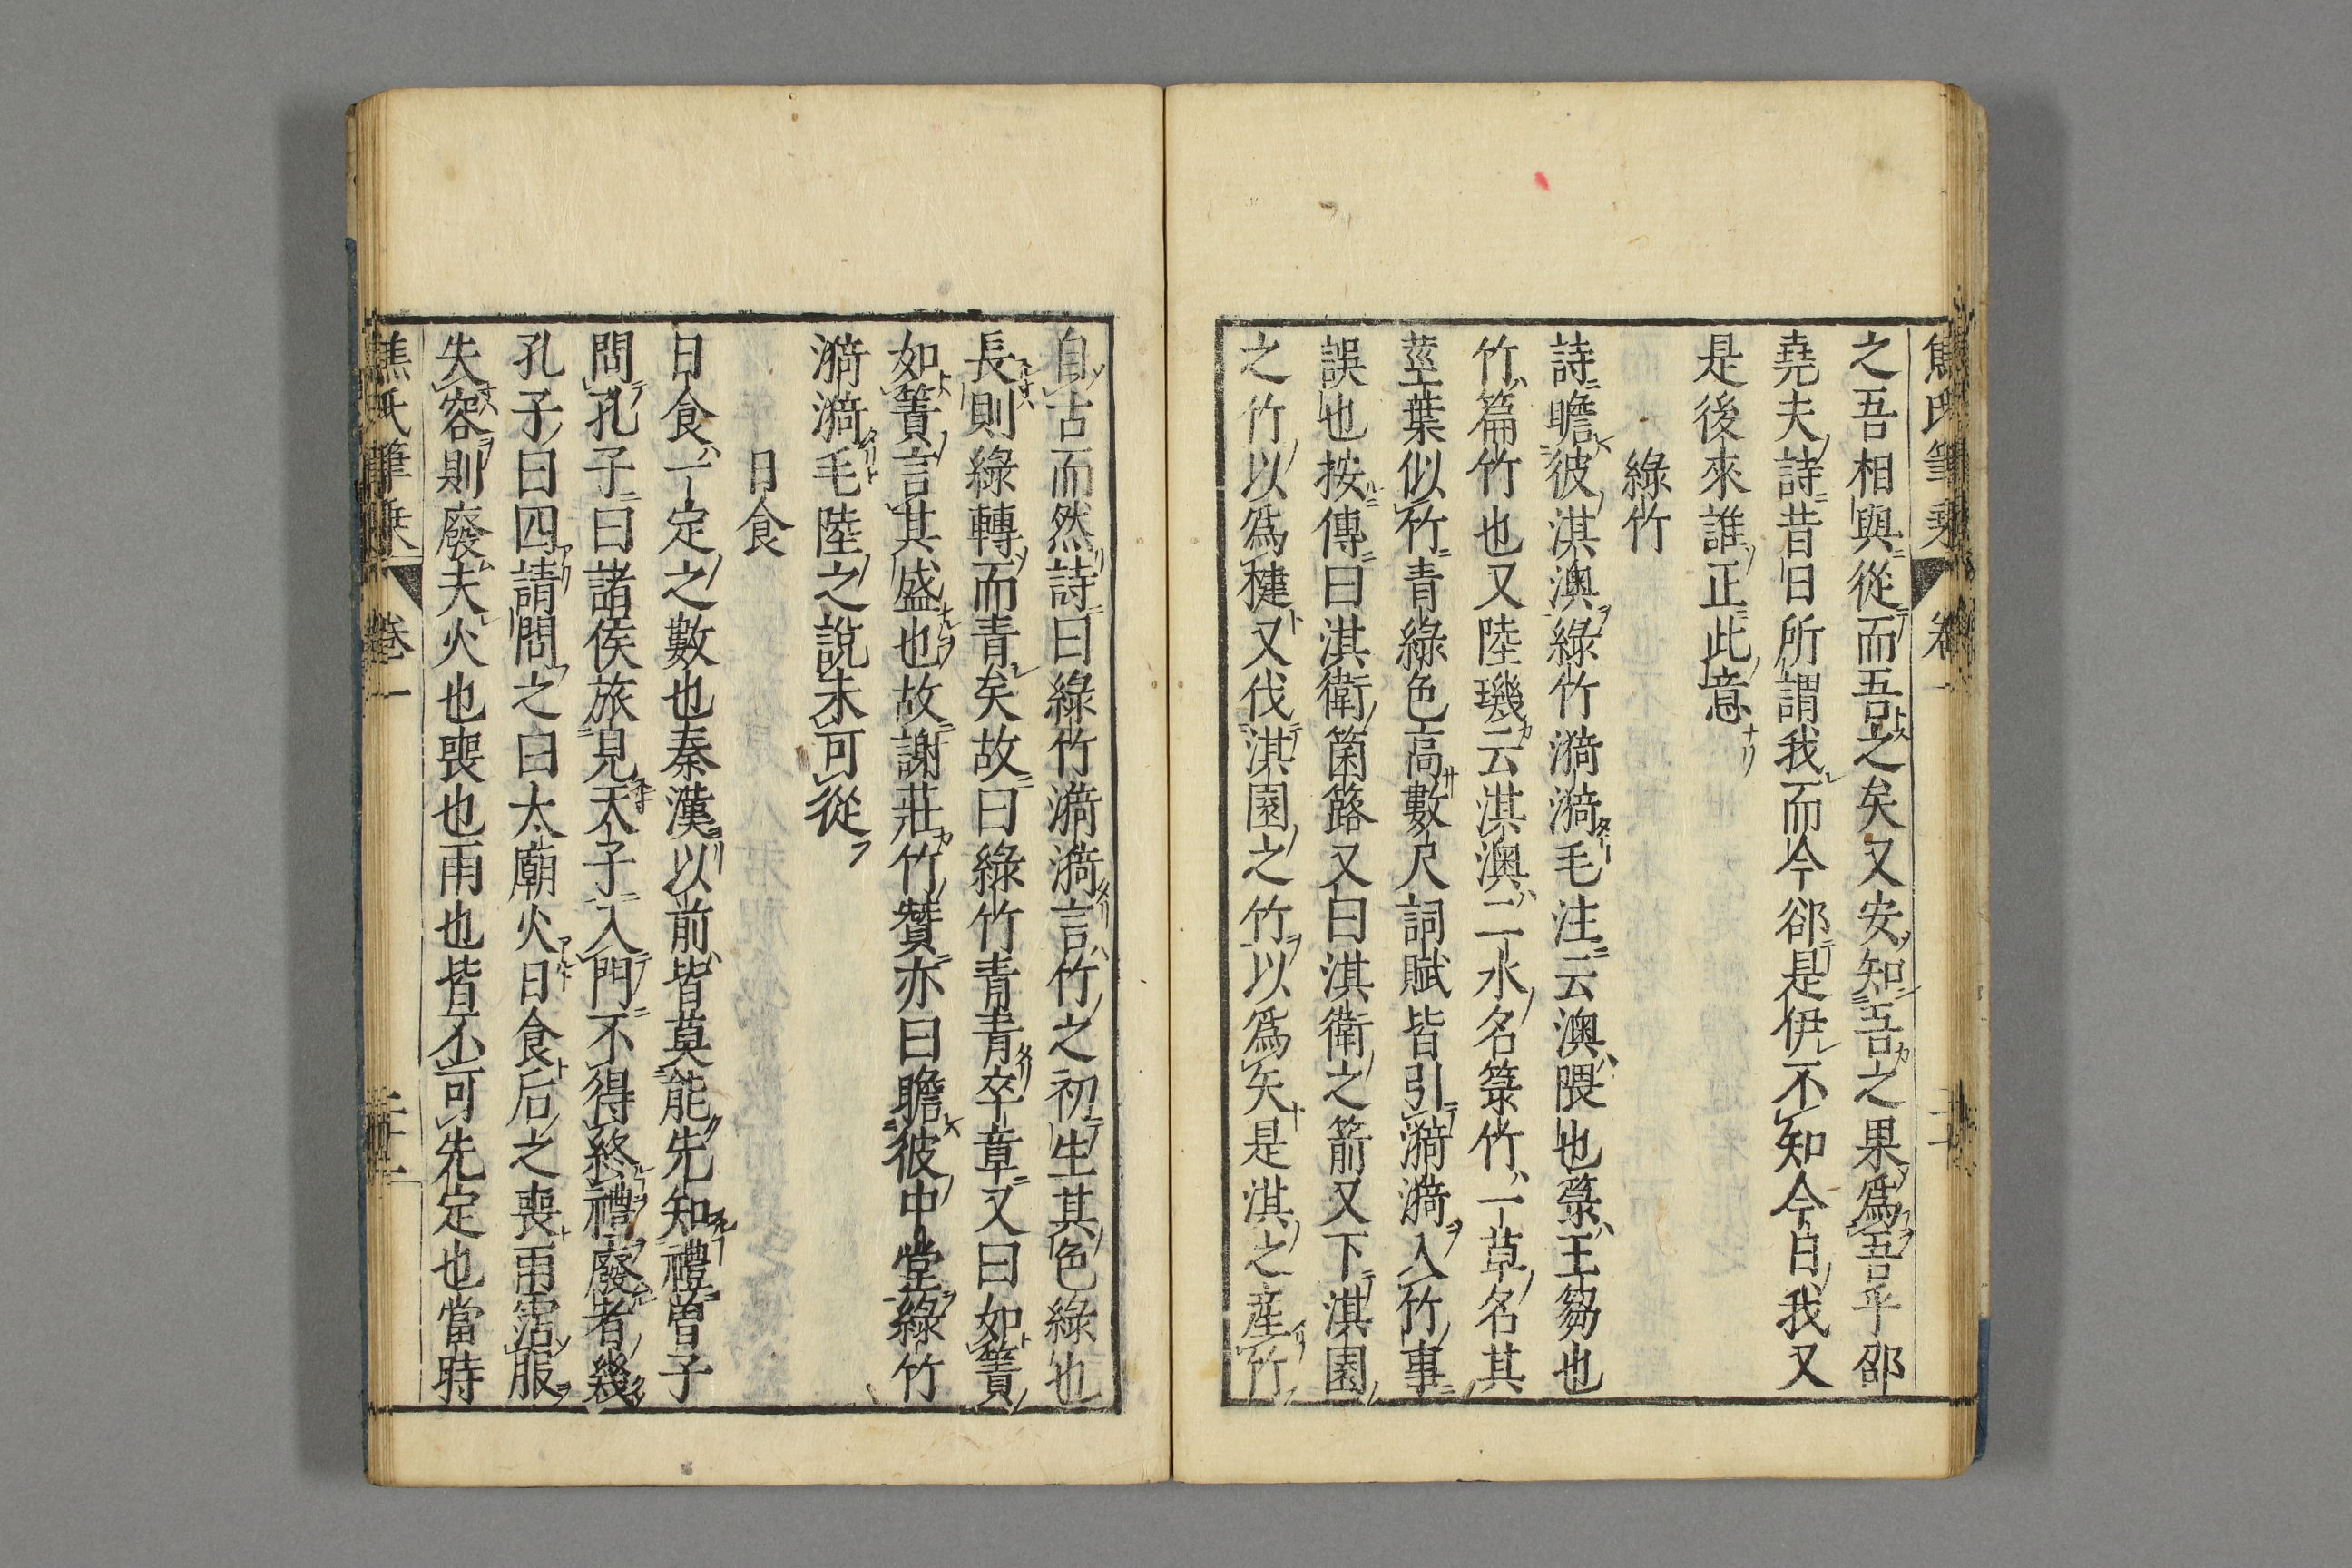 焦氏筆乘 卷一
之吾相與從而吾之矣又安知吾之果爲吾乎邵
堯夫詩昔日所謂我而今郤是伊不知今日我又
是後來誰正此意
綠竹
詩瞻彼淇澳綠竹漪漪毛注云澳隈也菉王芻也
竹篇竹也又陸璣云淇澳二水名菉竹一草名其
莖葉似竹青綠色高數尺詞賦皆引漪漪入竹事
誤也按傳曰淇衛箘簬又曰淇衛之箭又下淇園
之竹以爲楗又伐淇園之竹以爲矢是淇之産竹
自古而然詩曰綠竹漪漪言竹之初生其色綠也
長則綠轉而青矣故曰綠竹青青卒章又曰如簀
如簀言其盛也故謝莊竹贊亦曰瞻彼中堂綠竹
漪漪毛陸之說未可從
日食
日食一定之數也秦漢以前皆莫能先知禮曾子
問孔子曰諸侯旅見天子入門不得終禮廢者幾
孔子曰四請問之曰太廟火日食后之喪雨霑服
失容則廢夫火也喪也雨也皆不可先定也當時
焦氏筆乘 卷一